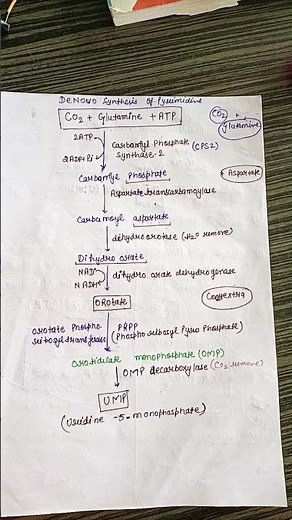 DeNovo Synthesis of Pyrimidine
CO2 + Glutamine + ATP
CO2 +
Glutamine
2ATP
2ADP+Pi
Carbamyl Phosphate (CPS2)
Synthase-2
Carbamyle Phosphate
+ Aspartate
Aspartate transcarbamaylase
Carbamoyl aspartate
dihydroorotase (H2O remove)
Dihydro orate
NAD+
NADH
dihydro orate dehydrogenase
OROTATE
Orotate Phospho
ribosyl transferase
PRPP
(Phospho ribosyl Pyro Phosphate)
Orotidulate monophosphate (OMP)
OMP decarboxylase (CO2 remove)
UMP
(Uridine -5-monophosphate)